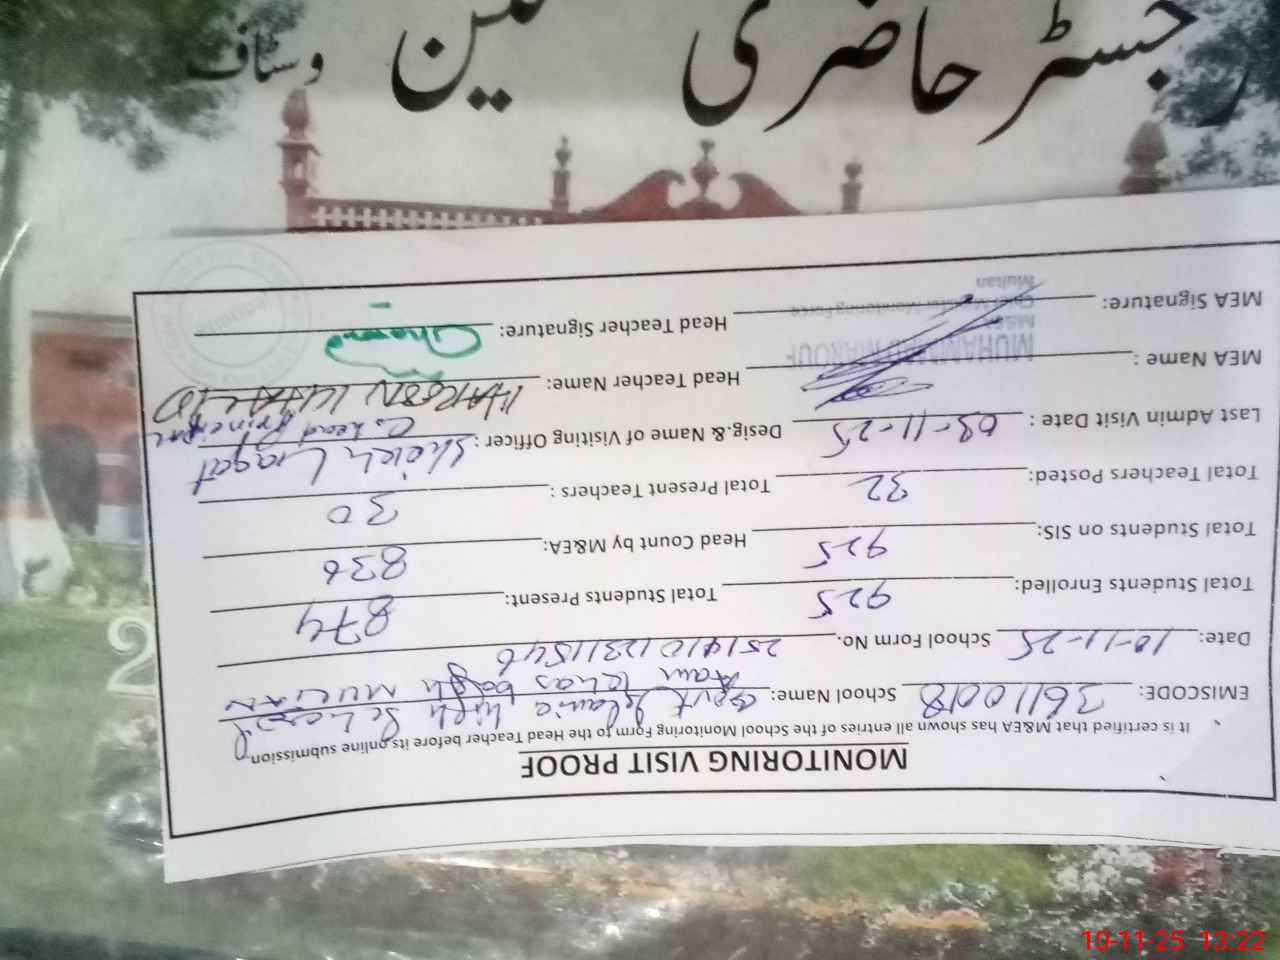 رجسٹر حاضری وسٹاف
MONITORING VISIT PROOF
It is certified that M&EA has shown all entries of the School Monitoring Form to the Head Teacher before its online submission.
EMISCODE: 36110018 School Name: Govt Islamia High School
Aam Khas bagh MULTAN
Date: 10-11-25 School Form No.
Total Students Enrolled: 925 Total Students Present: 874
Total Students on SIS: 925 Head Count by M&EA: 836
Total Teachers Posted: 32 Total Present Teachers : 30
Last Admin Visit Date : 03-11-25 Desig.& Name of Visiting Officer : Sheikh Liaqat
MEA Name : MUHAMMAD MAROUF Head Teacher Name: HAROON KHALID
MEA Signature: Head Teacher Signature:
Multan
2
10-11-25 13:22